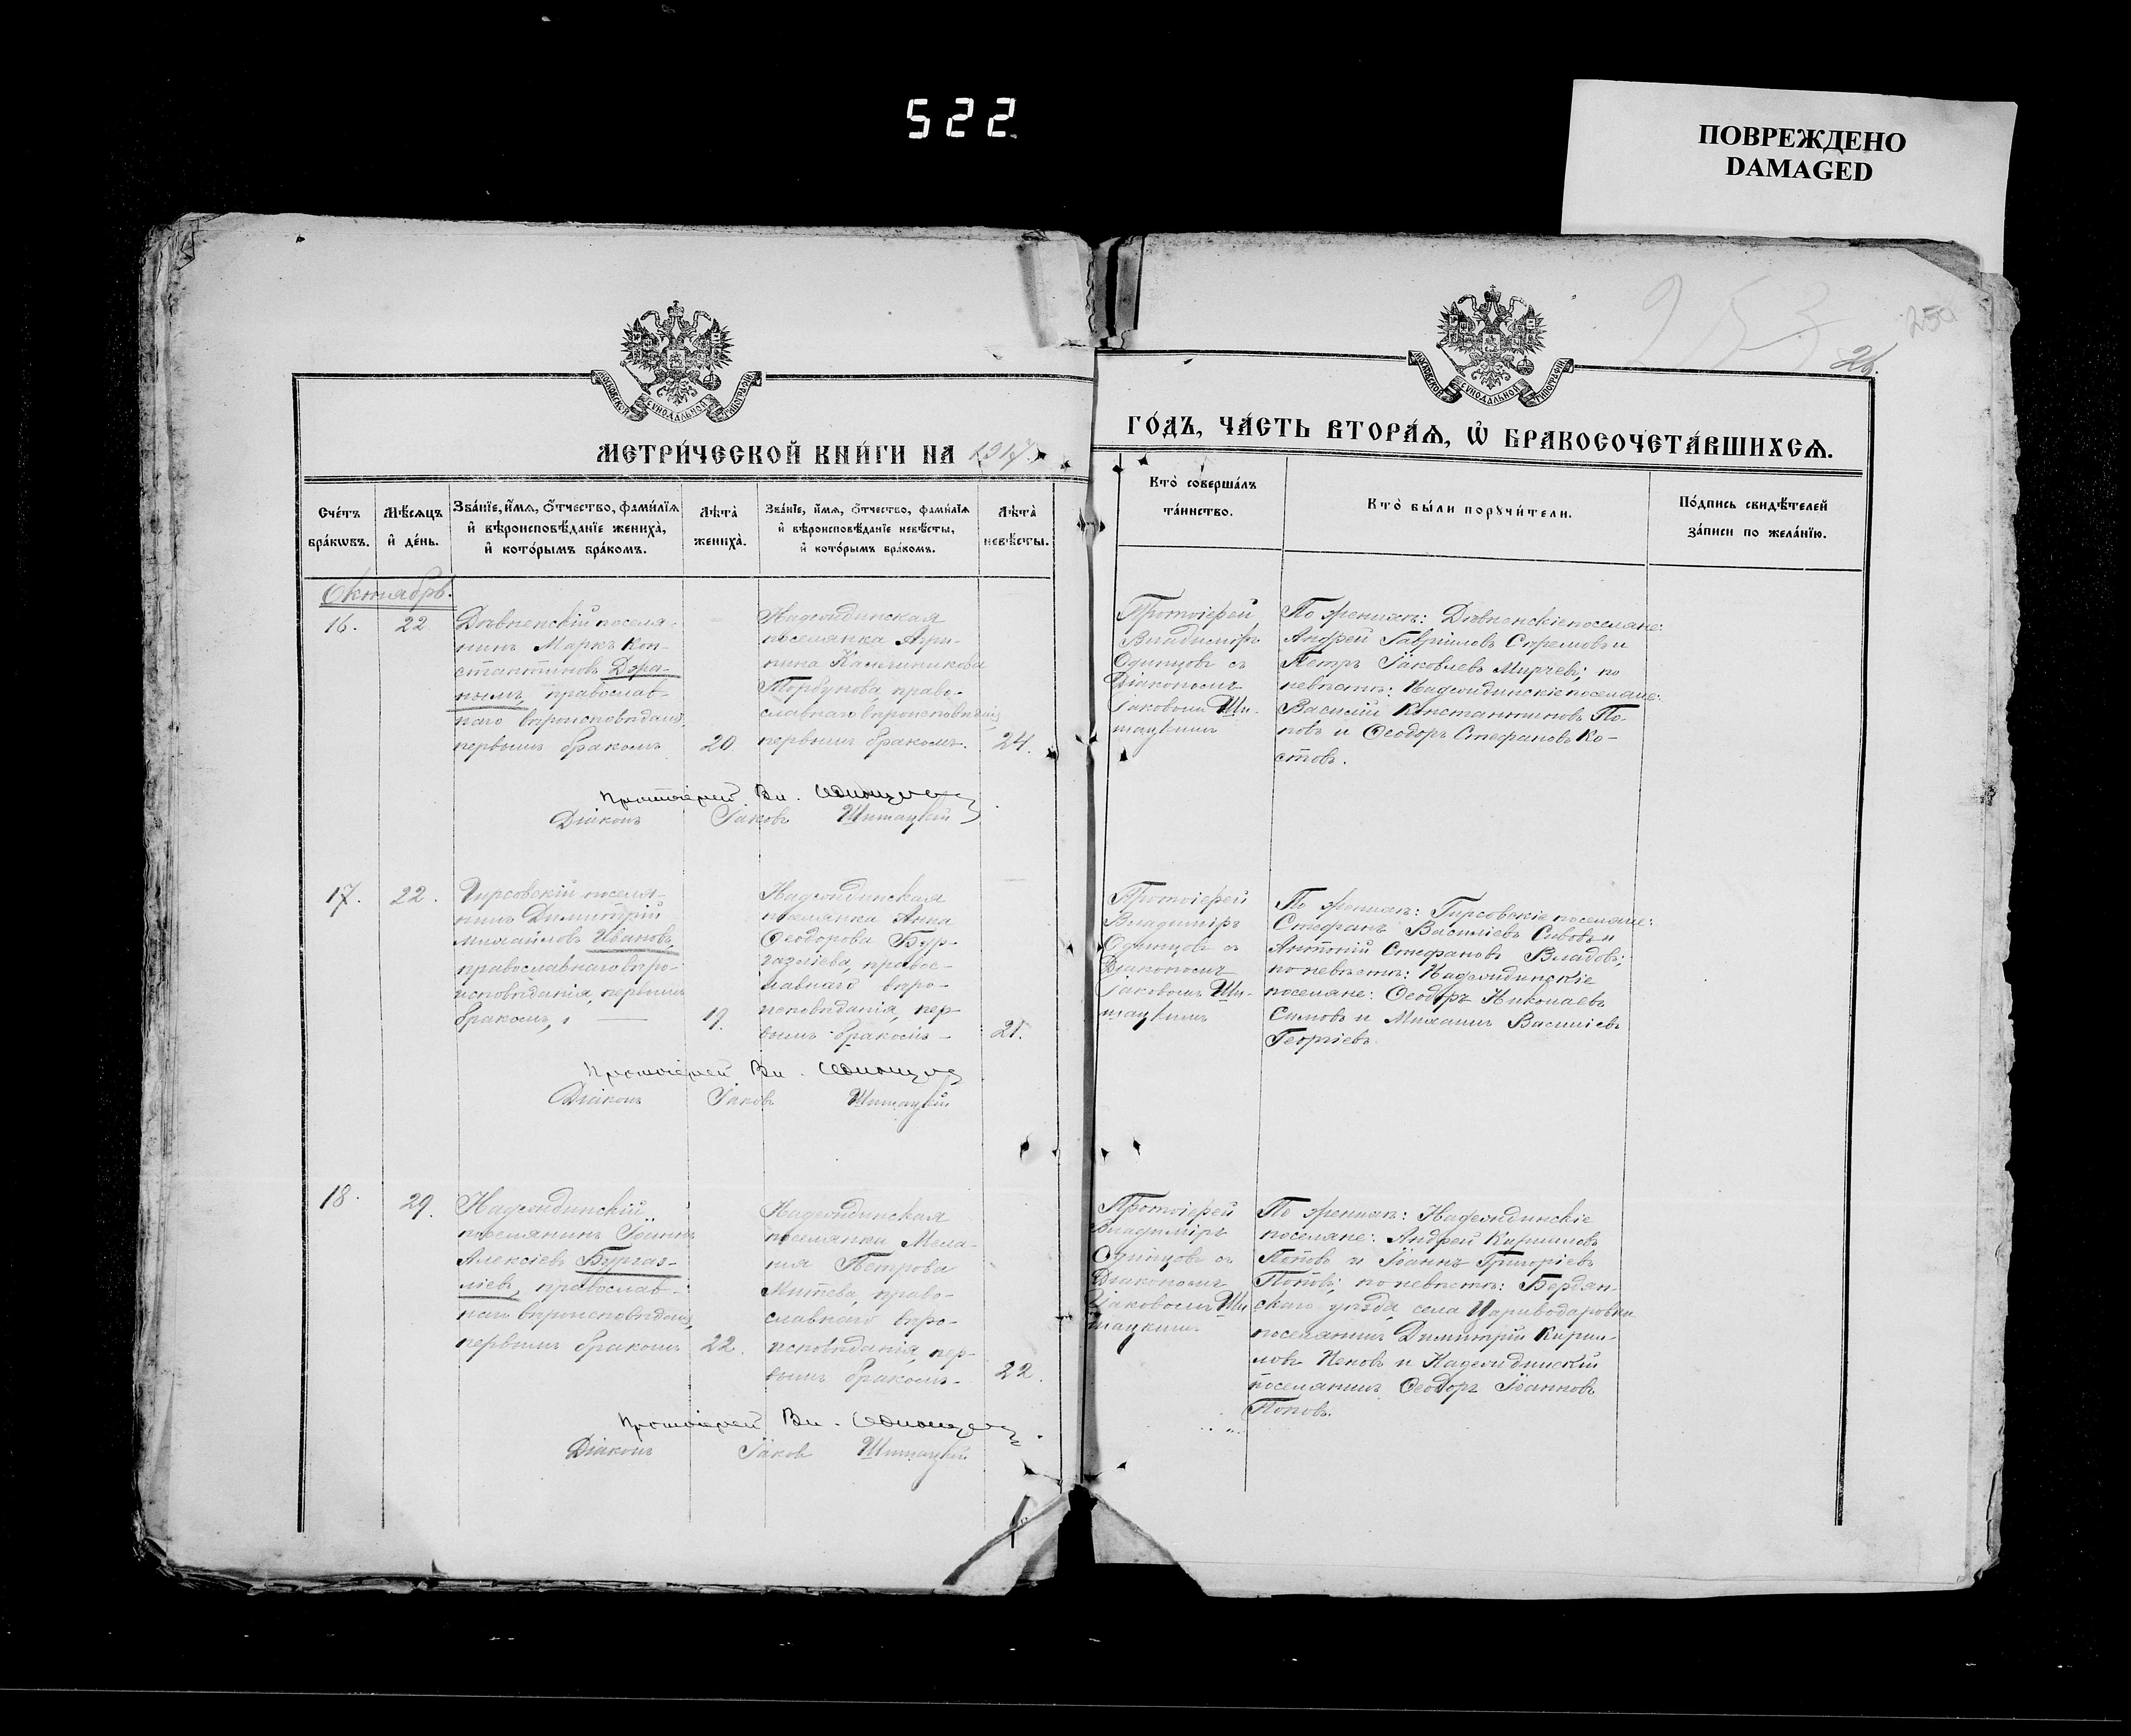 522
ПОВРЕЖДЕНО
DAMAGED
253
250
26.
МОСКОВСКОЙ СѴНОДАЛЬНОЙ ТИПОГРАФІИ
МОСКОВСКОЙ СѴНОДАЛЬНОЙ ТИПОГРАФІИ
МЕТРИ́ЧЕСКОЙ КНИ́ГИ НА 1917
ГО́ДЪ, ЧА́СТЬ ВТОРА́Ѧ, Ѡ҆ БРАКОСОЧЕТА́ВШИХСѦ.
Сче́тъ бра́кѡвъ.
Мѣ́сяцъ и҆ де́нь.
Зва́нїе, и҆́мѧ, ѻ҆́тчество, фами́лїѧ
и҆ вѣроисповѣ́данїе жениха̀,
и҆ кото́рымъ бра́комъ.
Лѣ́та̀ жениха̀.
Зва́нїе, и҆́мѧ, ѻ҆́тчество, фами́лїѧ
и҆ вѣроисповѣ́данїе невѣ́сты,
и҆ кото́рымъ бра́комъ.
Лѣ́та̀ невѣ́сты.
Кто̀ соверша́лъ
та́инство.
Кто̀ бы́ли порꙋчи́тели.
По́дпись свидѣ́телей
за́писи по жела́нїю.
Октябрь.
16.
22
Дѣвненскій поселя-
нинъ Маркъ Кон-
стантиновъ
православ-
наго вѣроисповѣданія,
первымъ бракомъ
20
Надеждинская
поселянка Агри-
пина
православнаго вѣроисповѣданія,
первымъ бракомъ.
24.
Протоіерей
Владиміръ
Одинцовъ съ
Діакономъ
Іаковомъ Ши-
тацкимъ
По женихѣ: Дѣвненскіе поселяне:
Андрей Гаврііловъ и
Петръ Іаковлевъ Мирчевъ; по
невѣстѣ: Надеждинскіе поселяне:
Василій Константиновъ По-
повъ и Ѳеодоръ Стефановъ Ко-
стовъ.
Протоіерей Вл. Одинцовъ
Діаконъ Іаковъ Шитацкій
17.
22.
Гирсовскій поселя-
нинъ Димитрій
Михайловъ Ивановъ,
православнаго вѣро-
исповѣданія, первымъ
бракомъ,
19.
Надеждинская
поселянка Анна
Ѳеодорова Бур-
газліева, правос-
лавнаго вѣро-
исповѣданія, пер-
вымъ бракомъ
21.
Протоіерей
Владиміръ
Одинцовъ съ
Діакономъ
Іаковомъ Ши-
тацкимъ
По женихѣ: Гирсовскіе поселяне:
Стефанъ Василіевъ Сивовъ и
Антоній Стефановъ Владовъ;
по невѣстѣ: Надеждинскіе
поселяне: Ѳеодоръ Николаевъ
Симовъ и Михаилъ Василіевъ
Георгіевъ.
Протоіерей Вл. Одинцовъ
Діаконъ Іаковъ Шитацкій
18.
29.
Надеждинскій
поселянинъ Іоаннъ
Алексіевъ Бургаз-
ліевъ, православ-
наго вѣроисповѣданія,
первымъ бракомъ
22.
Надеждинская
поселянка Мела-
нія Петрова
Митева, право-
славнаго вѣро-
исповѣданія, пер-
вымъ бракомъ
22.
Протоіерей
Владиміръ
Одинцовъ съ
Діакономъ
Іаковомъ Ши-
тацкимъ
По женихѣ: Надеждинскіе
поселяне: Андрей Кирилловъ
Поповъ и Іоаннъ Григоріевъ
Поповъ; по невѣстѣ: Бердян-
скаго уѣзда, села Цареводаровки
поселянинъ Димитрій Кирил-
ловъ Пеновъ и Надеждинскій
поселянинъ Ѳеодоръ Іоанновъ
Поповъ.
Протоіерей Вл. Одинцовъ
Діаконъ Іаковъ Шитацкій